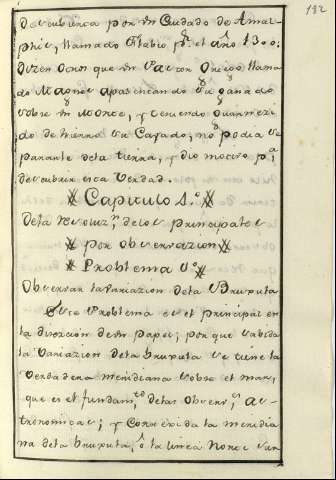 132
descubierta por un Ciudado de Amal-
phis, llamado Flabio pr. el año 1300.
Dizen otros que un Varon Griego llama
do Magnes apasentando su ganado
sobre un Monte, y teniendo guarneci
do de hierro su Cayado, no podia se
pararle de la tierra, y dio motivo pa.
descubrir esta Verdad.
Capitulo 4.o
De la resoluzn. de los principales
por Observazion
Problema 1.o
Observar la Variazion de la Bruxula
Este Problema es el principal en
la direczion de un Papel; por que sabida
la Variazion de la bruxula se tiene la
Verdadera meridiana sobre el mar,
que es el fundamto. de las Observs. As-
tronomicas; y Conozida la meridia
na de la bruxula, ô la linea Norte Sur